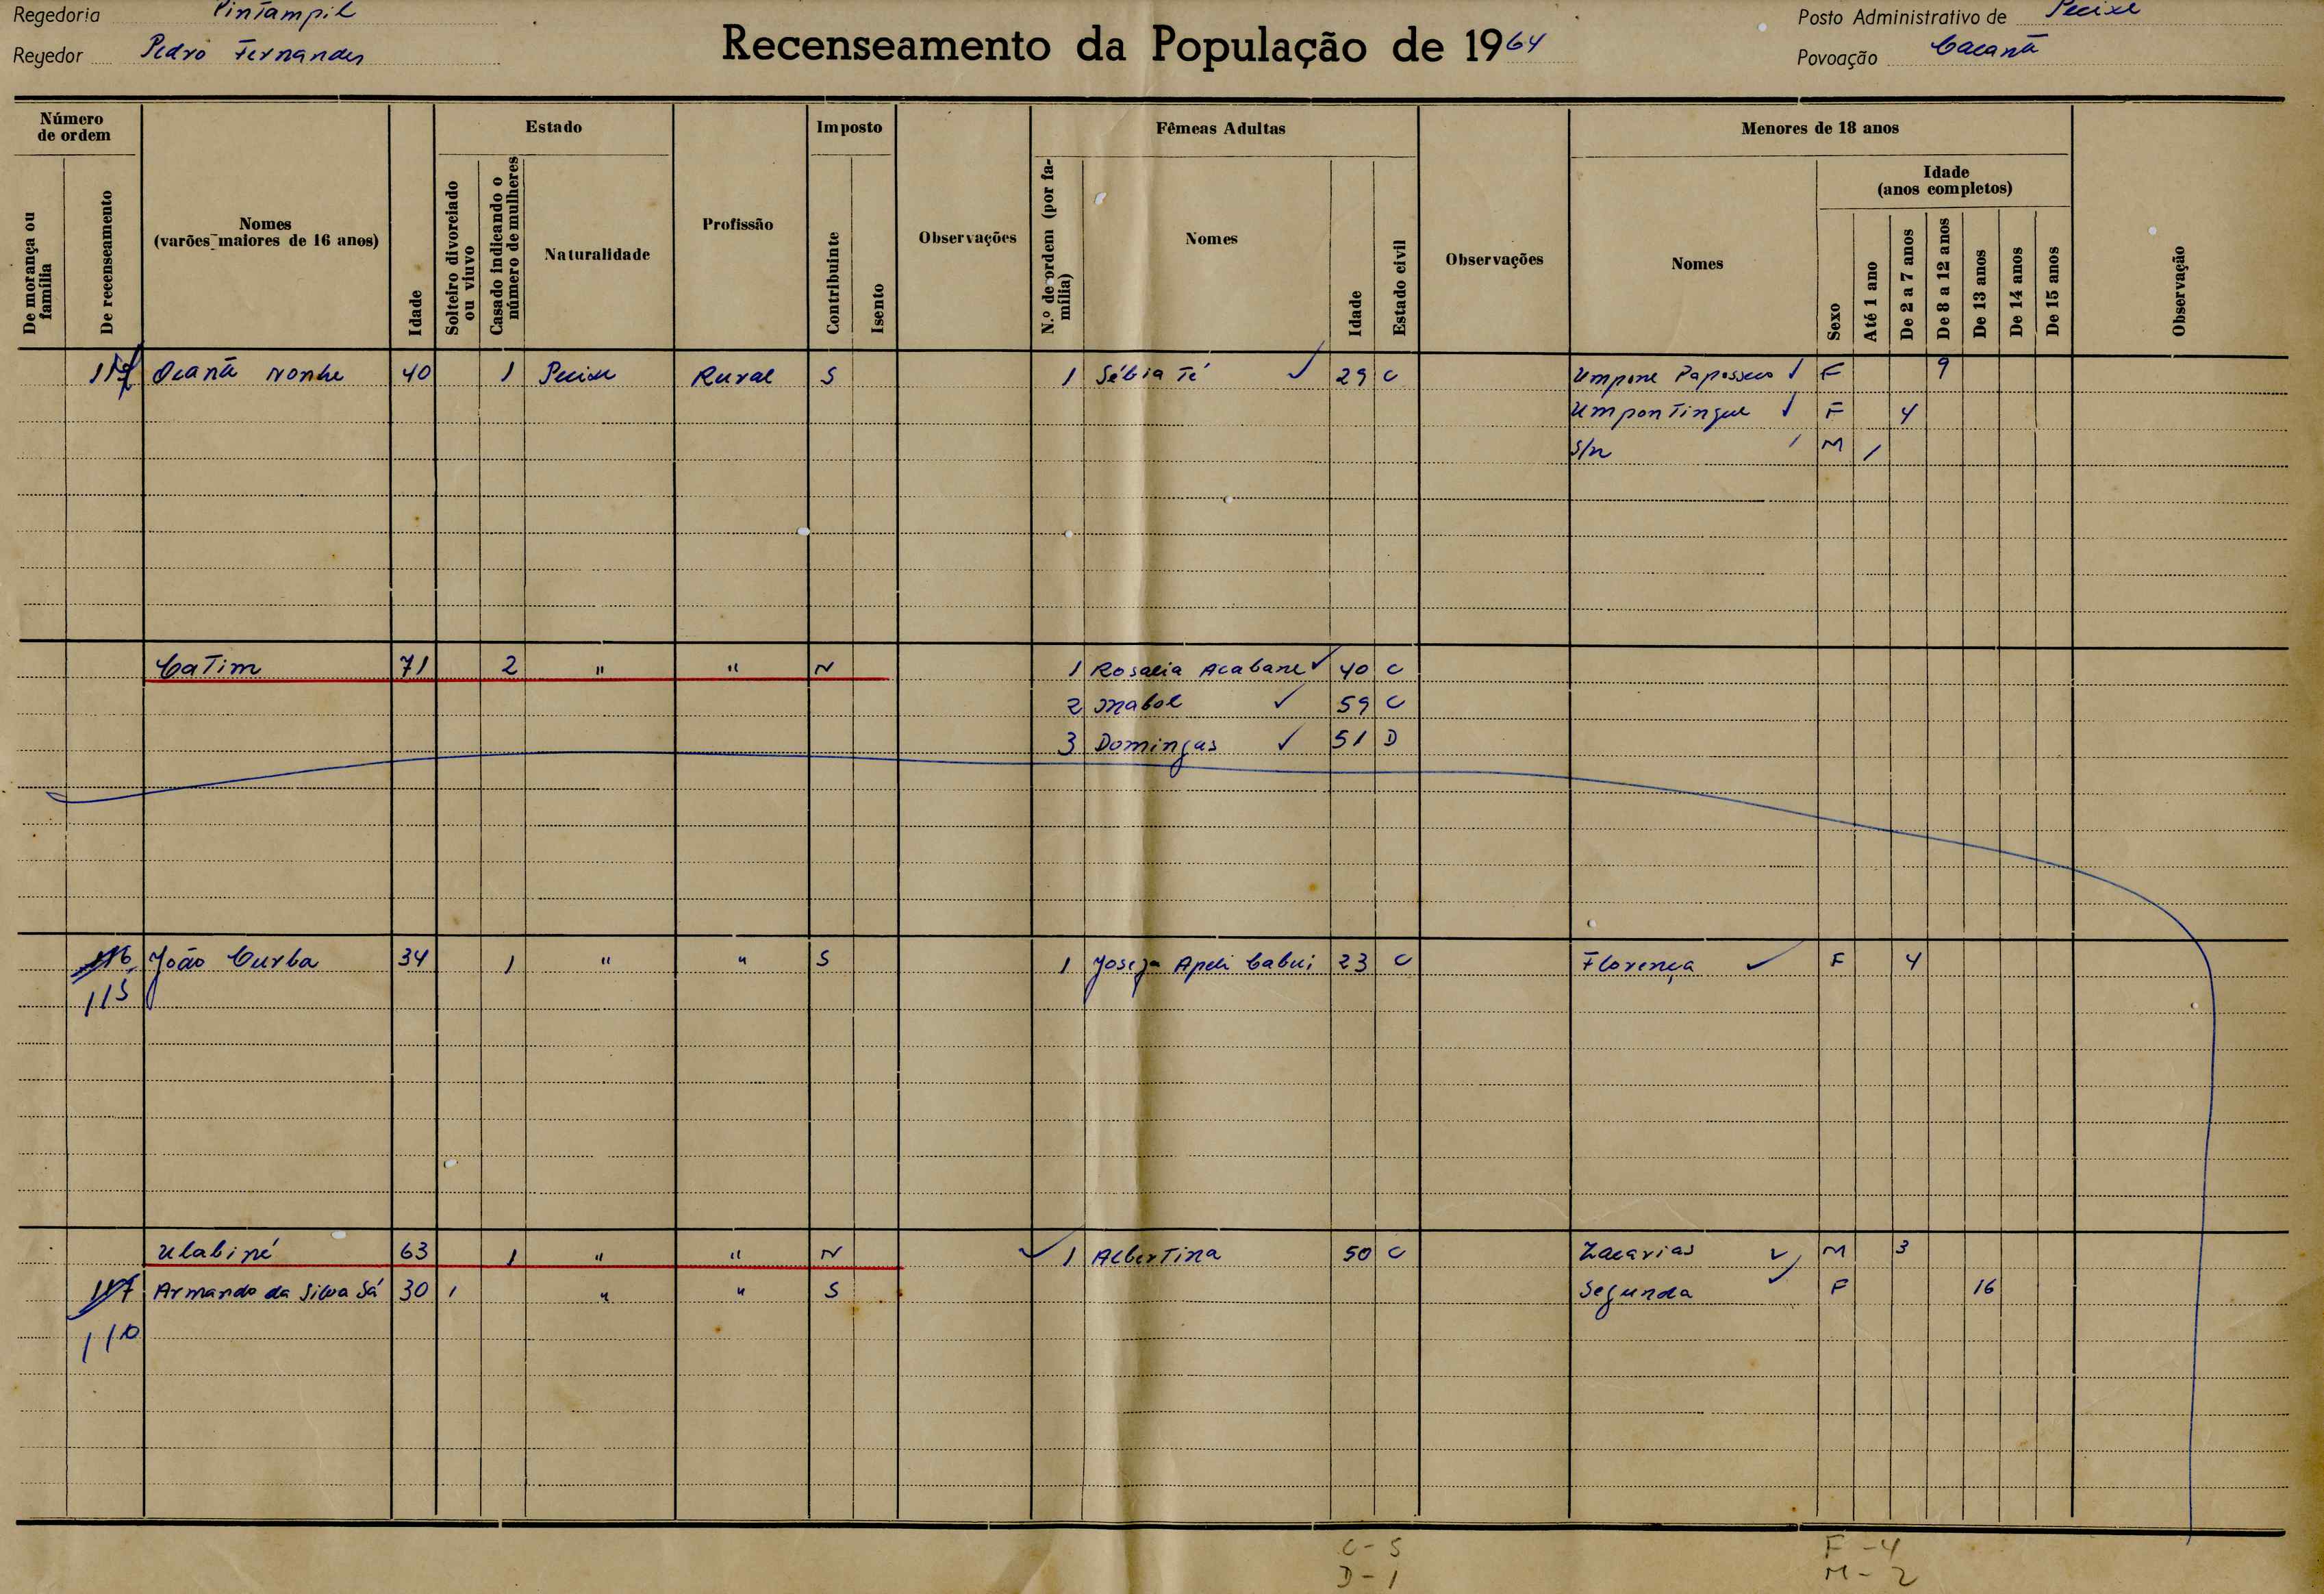 Regedoria Pintampil
Regedor Pedro Fernandes
Recenseamento da População de 1964
Posto Administrativo de Pecixe
Povoação Cacanã
Número de ordem
De morança ou família
De recenseamento
Nomes (varões maiores de 16 anos)
Idade
Estado
Solteiro divorciado ou viuvo
Casado indicando o número de mulheres
Naturalidade
Profissão
Imposto
Contribuinte
Isento
Observações
Fêmeas Adultas
N.º de ordem (por família)
Nomes
Idade
Estado civil
Observações
Menores de 18 anos
Nomes
Sexo
Idade (anos completos)
Até 1 ano
De 2 a 7 anos
De 8 a 12 anos
De 13 anos
De 14 anos
De 15 anos
Observação
Ocanã Nonhe 40 1 Pecixe Rural S 1 Sébia Té 29 C Umpone Paposseco F 9
Umpontingue F 4
S/n M 1
Catim 71 2 " " N 1 Rosalia Acabane 40 C
2 Mabol 59 C
3 Domingas 51 D
116 João Curba 34 1 " " S 1 Josefa Apili Cabui 23 C Florença F 4
115
Ulabiné 63 1 " " N 1 Albertina 50 C Zacarias M 3
117 Armando da Silva Sá 30 1 " " S Segunda F 16
110
C - 5
D - 1
F - 4
M - 2